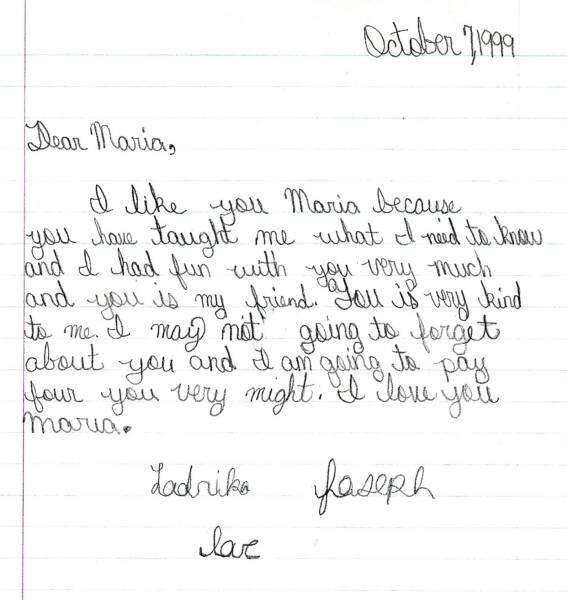 October 7, 1999
Dear Maria,
I like you Maria because
you have taught me what I need to know
and I had fun with you very much
and you is my friend. You is very kind
to me. I may not going to forget
about you and I am going to pay
four you very might. I love you
maria.
Ladrika Joseph
love